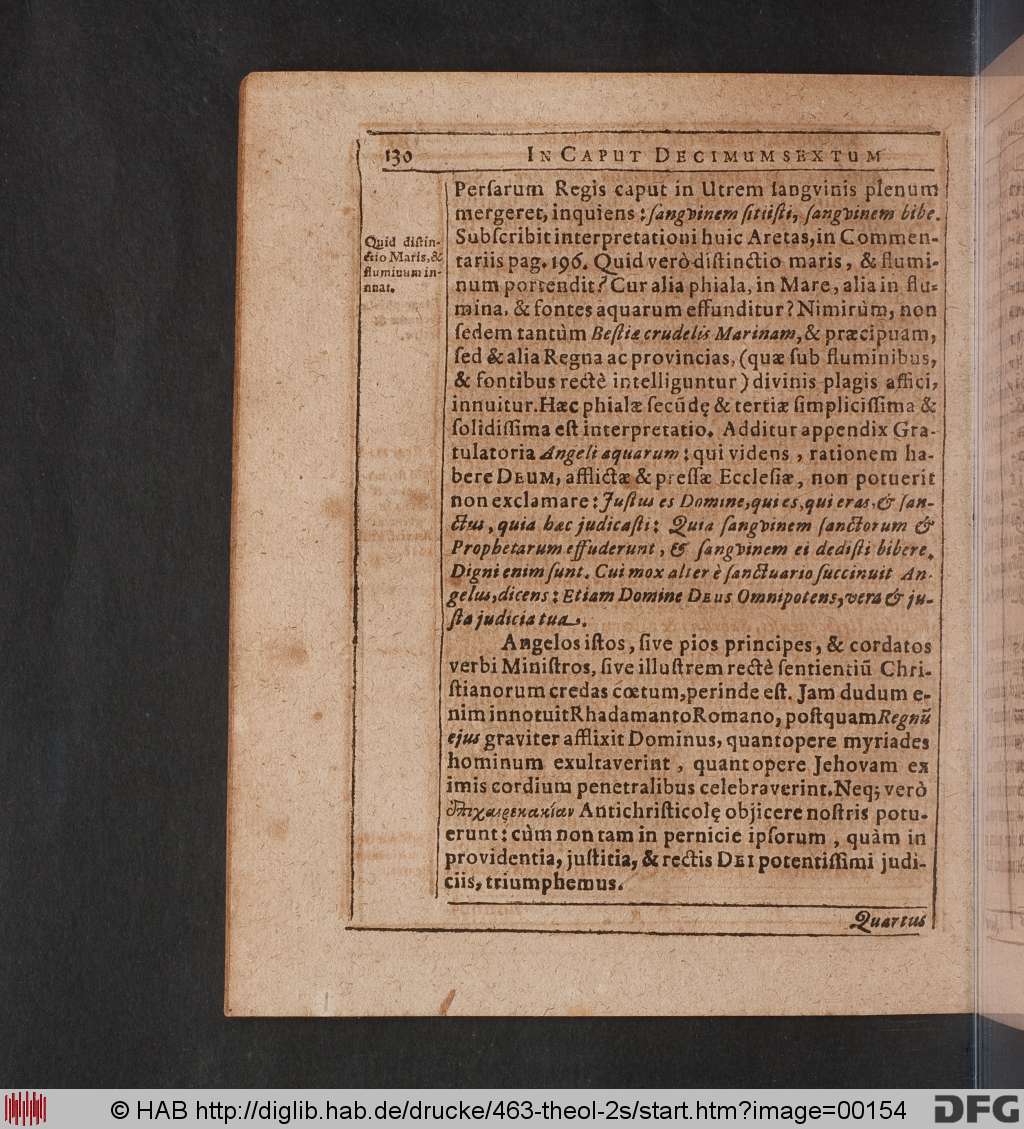 130 IN CAPUT DECIMUMSEXTUM
Perſarum Regis caput in Utrem ſangvinis plenum
mergeret, inquiens: ſangvinem ſitiiſti, ſangvinem bibe.
Subſcribit interpretationi huic Aretas, in Commen-
tariis pag. 196. Quid verò diſtinctio maris, & flumi-
num portendit? Cur alia phiala, in Mare, alia in flu-
mina. & fontes aquarum effunditur? Nimirùm, non
ſedem tantùm Beſtiæ crudelis Marinam, & præcipuam,
ſed & alia Regna ac provincias, (quæ ſub fluminibus,
& fontibus rectè intelliguntur) divinis plagis affici,
innuitur. Hæc phialæ ſecũdę & tertiæ ſimpliciſſima &
ſolidiſſima eſt interpretatio. Additur appendix Gra-
tulatoria Angeli aquarum: qui videns, rationem ha-
bere DEUM, afflictæ & preſſæ Eccleſiæ, non potuerit
non exclamare: Juſtus es Domine, qui es, qui eras, & ſan-
ctus, quia hæc judicaſti: Quia ſangvinem ſanctorum &
Prophetarum effuderunt, & ſangvinem ei dediſti bibere.
Digni enim ſunt. Cui mox alter è ſanctuario ſuccinuit An-
gelus, dicens: Etiam Domine DEUS Omnipotens, vera & ju-
ſta judicia tua.
Angelos iſtos, ſive pios principes, & cordatos
verbi Miniſtros, ſive illuſtrem rectè ſentientiũ Chri-
ſtianorum credas cœtum, perinde eſt. Jam dudum e-
nim innotuit Rhadamanto Romano, poſtquam Regnũ
ejus graviter afflixit Dominus, quantopere myriades
hominum exultaverint, quantopere Jehovam ex
imis cordium penetralibus celebraverint. Neq; verò
ἐπιχαιρεκακίαν Antichriſticolę objicere noſtris potu-
erunt: cùm non tam in pernicie ipſorum, quàm in
providentia, juſtitia, & rectis DEI potentiſſimi judi-
ciis, triumphemus.
Quartus
Quid diſtin-
ctio Maris, &
fluminum in-
nuat.
© HAB http://diglib.hab.de/drucke/463-theol-2s/start.htm?image=00154
DFG